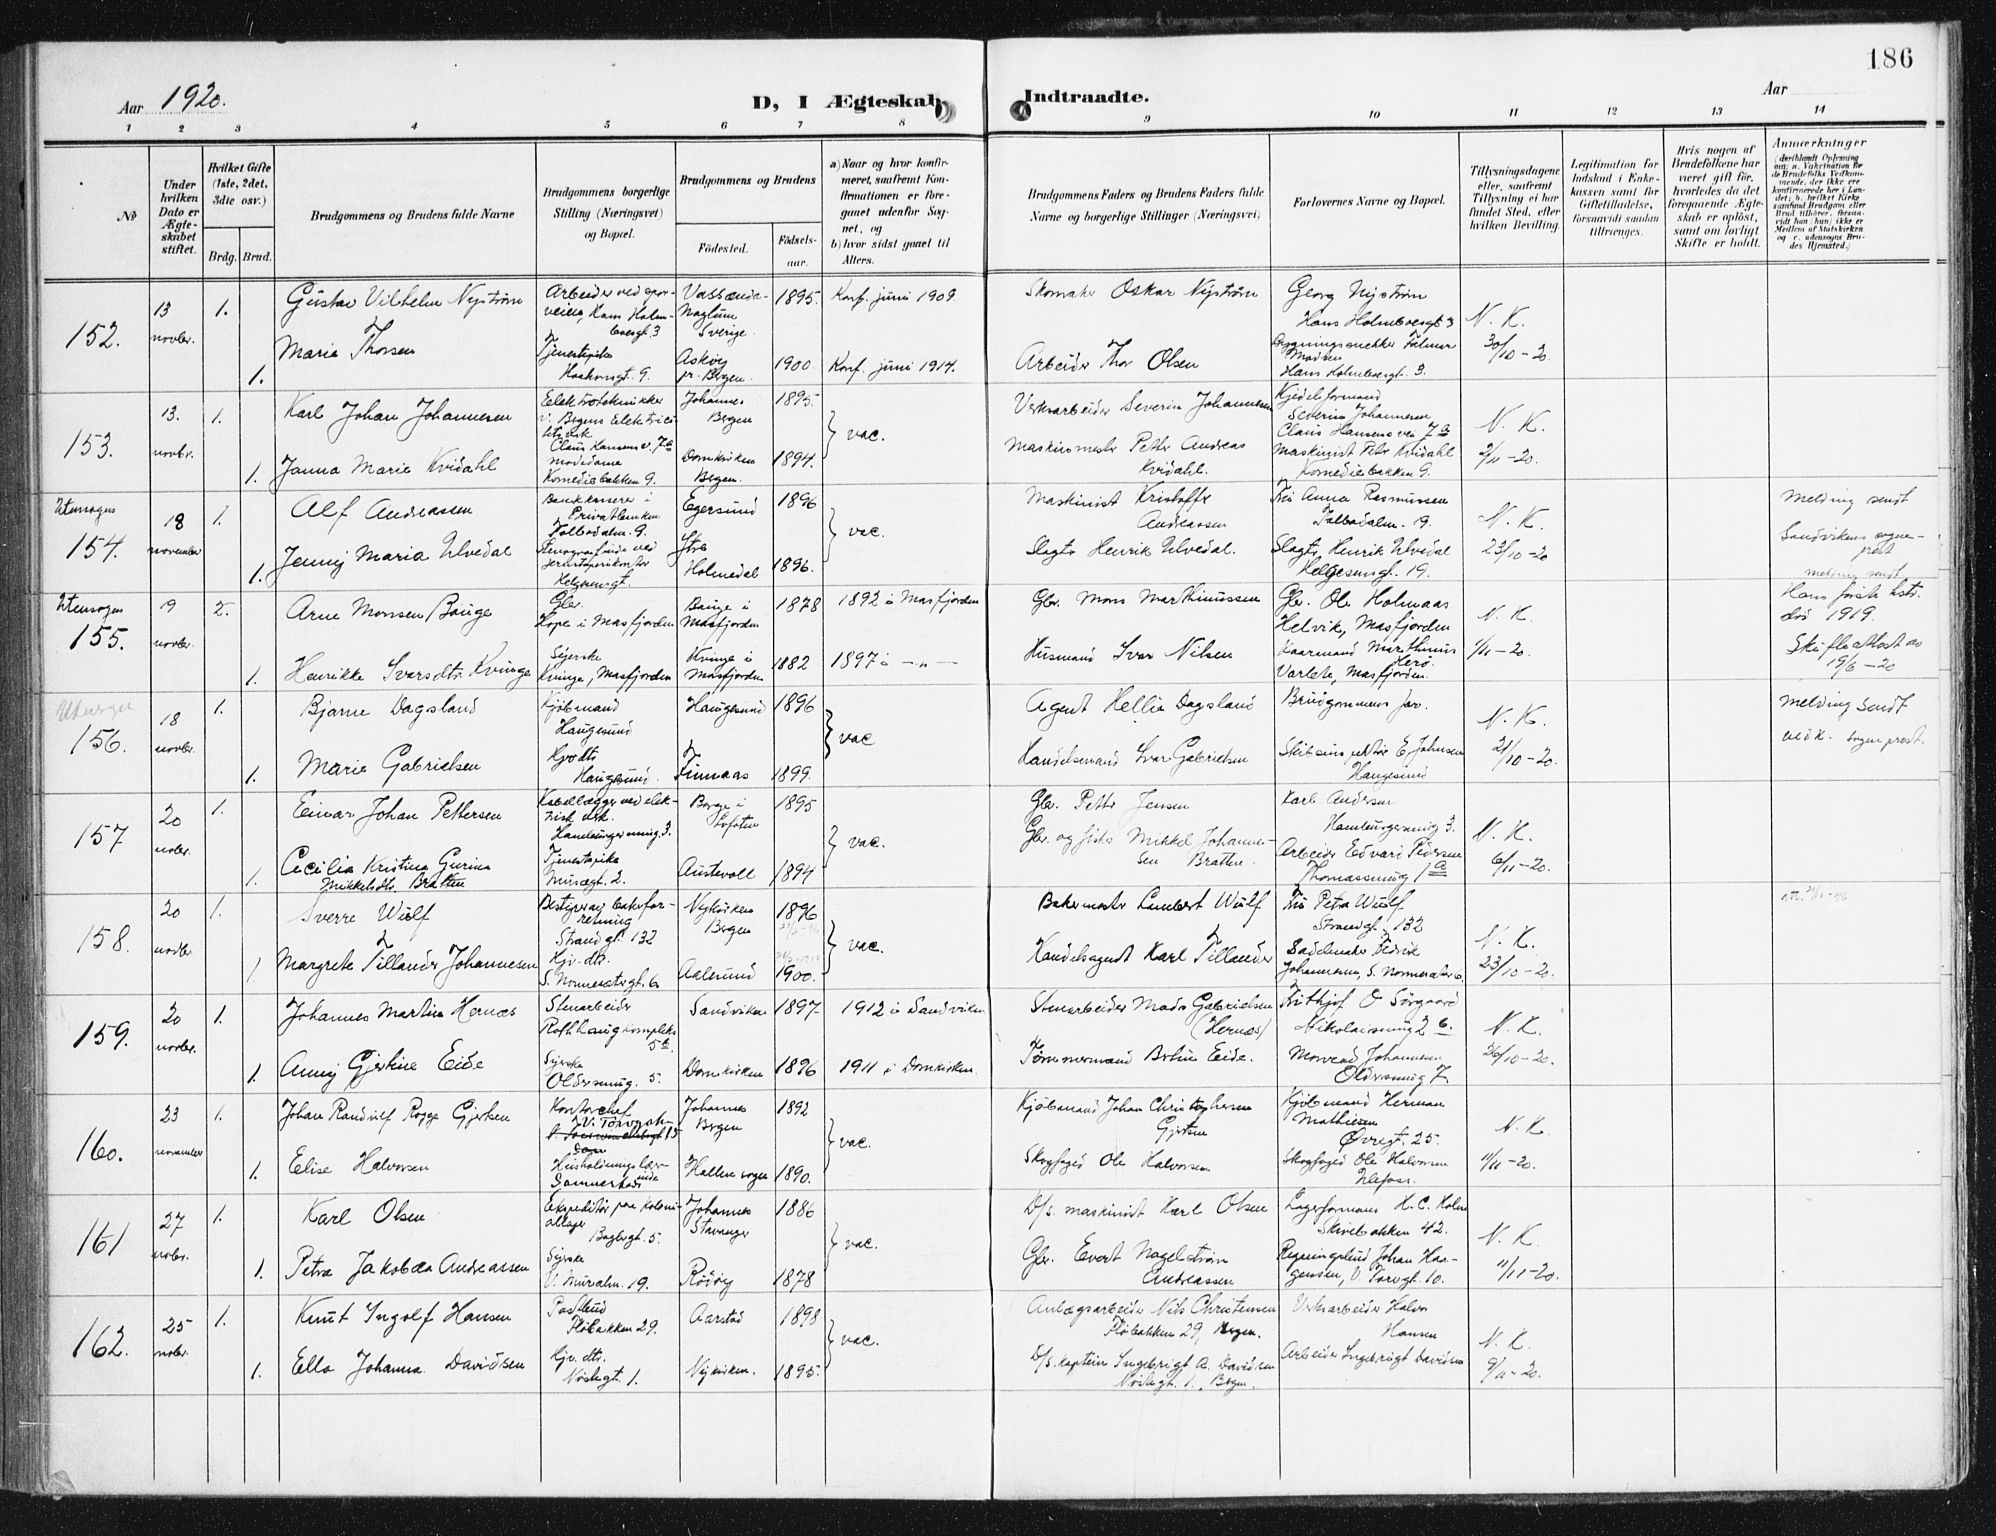 186
Aar 1920.
D, I Ægteskab
Indtraadte.
Aar
1 2 3 4 5 6 7 8 9 10 11 12 13 14
No
Under hvilken Dato er Ægteskabet stiftet.
Hvilket Gifte (1ste, 2det, 3die osv.)
Brdg. Brud.
Brudgommens og Brudens fulde Navne
Brudgommens borgerlige Stilling (Næringsvei) og Bopæl.
Brudgommens og Brudens
Födested.
Födselsaar.
a) Naar og hvor konfirmeret, saafremt Konfirmationen er foregaaet udenfor Sognet, og
b) hvor sidst gaaet til Alters.
Brudgommens Faders og Brudens Faders fulde Navne og borgerlige Stillinger (Næringsvei)
Forlovernes Navne og Bopæl.
Tillysningsdagene eller, saafremt Tillysning ei har fundet Sted, efter hvilken Bevilling.
Legitimation for Indskud i Enkekassen samt for Giftetilladelse, forsaavidt saadan tiltrænges.
Hvis nogen af Brudefolkene har været gift för, hvorledes da det foregaaende Ægteskab er oplöst, samt om lovligt Skifte er holdt.
Anmærkninger
152. 13 novbr. 1. Gustav Vilhelm Nyström
Arbeider ved sporveien, Hans Holmboesgt. 3
Sverige 1895. Konf. juni 1909.
Skomaker Oskar Nyström
Georg Nyström
Hans Holmboesgt 3
N. K.
30/10-20.
1. Marie Thorsen
Tjenestepike
Haakonsgt. 9.
Askøy pr. Bergen. 1900. Konf. juni 1914.
Arbeider Thor Olsen
Hans Holmboesgt. 3.
153. 13. novbr. 1. Karl Johan Johannesen
Elektrotekniker v. Bergens Elektricitetsverk
Claus Hansens v. 7a
Johannes Bergen 1895. vac.
Verksarbeider Severin Johannesen
Kjedelformand
Severin Johannesen
Claus Hansens vei 7a
N. K.
2/11-20.
1. Janna Marie Kvidahl
Modedame
Komediebakken 9.
Domkirken Bergen. 1894.
Maskinmester Petter Andreas Kvidahl.
Maskinist Petter Kvidahl
Komediebakken 9.
Utensogns
154. 18 november 1. Alf Andreassen
Bankkasserer i Privatbanken
Tolbodalm. 9.
Egersund 1896 vac.
Maskinist Kristoffer Andreassen
Fru Anna Rasmussen
Tolbodalm. 19.
N. K.
23/10-20
Melding sendt
Sandvikens sogneprest
1. Jenny Maria Ulvedal
Helgesensgt.
Ytre Holmedal 1896.
Slagter Henrik Ulvedal.
Slagter Henrik Ulvedal
Helgesensgt. 19.
Utensogns
155. 9 novbr. 2. Arne Monsen Bauge
Gbr.
Hope i Masfjorden
Bauge i Masfjorden 1878 1892 i Masfjorden
Gbr. Mons Marthinussen
Gbr. Ole Holmaas
Helvik, Masfjorden
N. K.
1/11-20.
melding sendt
Hans første hustr. død 1919.
Skifteattest av 19/6-20
1. Henrikke Sversdtr. Kvinge
Syerske
Kvinge, Masfjorden
Kvinge i Masfjorden 1882 1897 i -"-
Husmand Ivar Nilsen
Marthinus Herø.
Masfjorden.
Utensogns
156. 18 novbr. 1. Bjarne Dagsland
Kjøbmand
Haugesund
Haugesund 1896 vac
Agent Hellie Dagsland
Brudgommens far.
N. K.
21/10-20.
Melding sendt
vedk. sogneprest.
1. Marie Gabrielsen
Hj. dtr.
Haugesund.
Finnaas 1899.
Handelsmand Ivar Gabrielsen
Skibsinspektør E. Johnsen
Haugesund
157 20 novbr. 1. Einar Johan Pettersen
Kabellægger ved elektrisk verk.
Hamburgersmug 3.
Borge i Lofoten 1895 vac.
Gbr. Petter Jensen
Karl Andersen
Hamburgersmug 3.
N. K.
6/11-20.
1. Cecilia Kristine Gurina Mikkelsdtr. Bratten
Tjenestepike
Museegt. 2.
Austevoll 1894
Gbr. og fisker Mikkel Johannesen Bratten.
Arbeider Edvard Pedersen
Thomassmug 1a
158. 20 novbr. 1. Sverre Wulf
Bestyrer av bakerforretning
Strandgt. 132
Nykirken Bergen 1896 vac.
Bakermester Lambert Wulf
Fru Petra Wulf
Strandgt. 132
N. K.
23/10-20.
1. Margrete Tillander Johannesen
Hj. dtr.
S. Nonnestergt. 6
Aalesund 1900.
Handelsagent Karl Tillander
Sadelmaker Fredrik Johannesen, S. Nonnestergt 6.
159. 20 novbr. 1. Johannes Martin Hernæs
Stenarbeider
Rothhaugkomplekset 5b.
Sandviken 1897. 1912 i Sandviken
Stenarbeider Mads Gabrielsen (Hernæs)
Frithjof O Sørgaard
Nikolaismug 26.
N. K.
26/10-20.
1. Anny Gjertine Eide
Syerske
Oldersmug. 5.
Domkirken 1896 1911 i Domkirken.
Tømmermand Brhne Eide.
Johannesen
Oldersmug 7.
160. 23 november 1. Johan Randulf Rogge Gjertsen
Kontorchef
Johannes Bergen 1892 vac.
Kjøbmand Johan Christophersen Gjertsen
Kjøbmand Herman Mathiesen
Øvregt. 25.
N. K.
11/11-20.
1. Elise Halvorsen
Husholdningslærerinde
Hollen sogn 1890.
Skogfoged Ole Halvorsen
Skogfoged Ole Halvorsen
Ulefoss.
161 27 novbr. 1. Karl Olsen
Ekspeditør paa koloniallager
Johannes Stavanger 1886 vac.
D/s. maskinist Karl Olsen
Lagerformand H. C. Holm
Skivebakken 42.
N. K.
11/11-20.
1. Petra Jakobea Andreassen
Syerske
V. Muralm. 19.
Rødøy 1878
Gbr. Evert Nagelstrøm Andreassen
Regningsbud Johan Haagensen, V. Torvgt. 10.
162. 25 novbr. 1. Knut Ingolf Hansen
Postbud
Fløbakken 29.
Aarstad 1898 vac.
Anlægsarbeider Nils Christensen
Fløbakken 29, Bergen.
Verksarbeider Halvor Hansen
N. K.
9/11-20.
1. Ella Johanna Davidsen
Hj. dtr.
Nøstegt. 1.
Nykirken. 1895.
D/s. kaptein Ingebrigt A. Davidsen
Nøstegt. 1., Bergen.
Arbeider Ingebrigt Davidsen